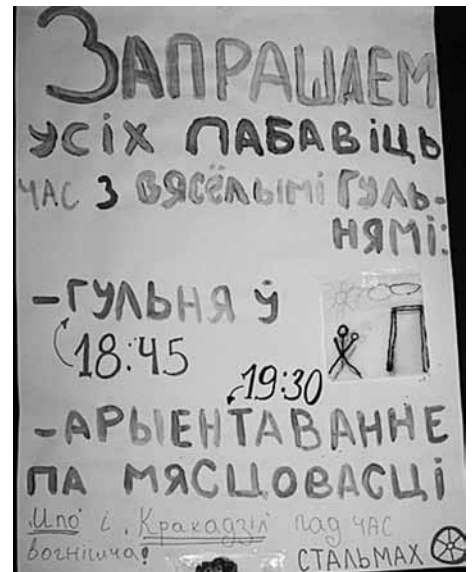 ЗАПРАШАЕМ
УСІХ ПАБАВІЦЬ
ЧАС З ВЯСЁЛЫМІ ГУЛЬ-
НЯМІ:
- ГУЛЬНЯ Ў
18:45
19:30
- АРЫЕНТАВАННЕ
ПА МЯСЦОВАСЦІ
"Іпо" і "Кракадзіл" пад час
вогнішча!
СТАЛЬМАХ